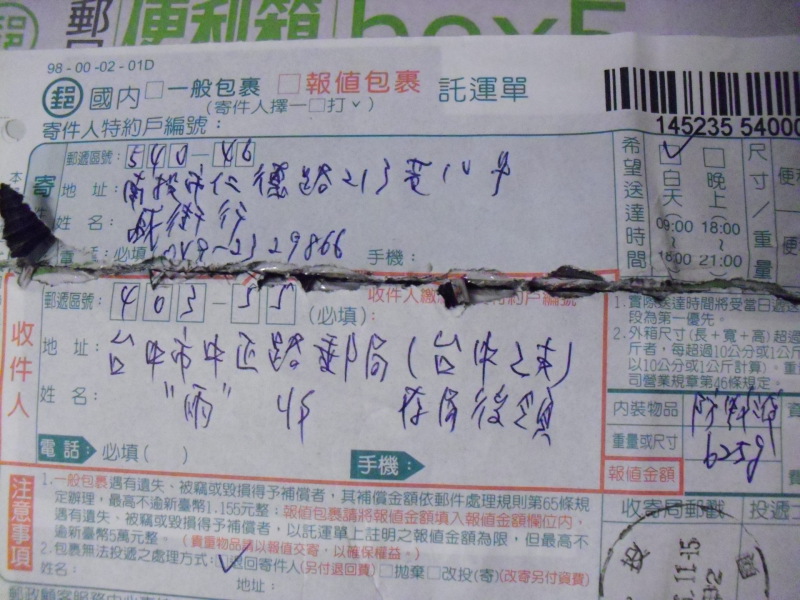 郵 便利箱 box5
98-00-02-01D
郵 國內 □一般包裹 □報值包裹 託運單
(寄件人擇一□打ˇ)
寄件人特約戶編號：
145235 54000
郵遞區號：540-46
寄
地 址：南投市仁德路213巷14號
姓 名：
電 必填 049-2329866 手機：
希望送達時間
白天 (09:00 ~ 18:00
晚上 18:00 ~ 21:00)
尺寸／重量
便
收件人
郵遞區號：403-55 (必填)：
地 址：台中市中正路郵局(台中2支)
姓 名："雨" 存局後領
電話： 必填( )
手機：
1.實際送達時間將受當日遞送
段為第一優先。
2.外箱尺寸(長+寬+高)超過
斤者，每超過10公分或1公斤
以10公分或1公斤計算)。重
司營業規章第46條規定。
內裝物品
重量或尺寸 625g
報值金額
收寄局郵戳 投遞
注意事項
1.一般包裹遇有遺失、被竊或毀損得予補償者，其補償金額依郵件處理規則第65條規
定辦理，最高不逾新臺幣1,156元整；報值包裹請將報值金額填入報值金額欄位內，
遇有遺失、被竊或毀損得予補償者，以託運單上註明之報值金額為限，但最高不
逾新臺幣5萬元整。(貴重物品請以報值交寄，以確保權益。)
2.包裹無法投遞之處理方式：☑退回寄件人(另付退回費)□拋棄□改投(寄)(改寄另付資費)
姓名： 地址：
11.15